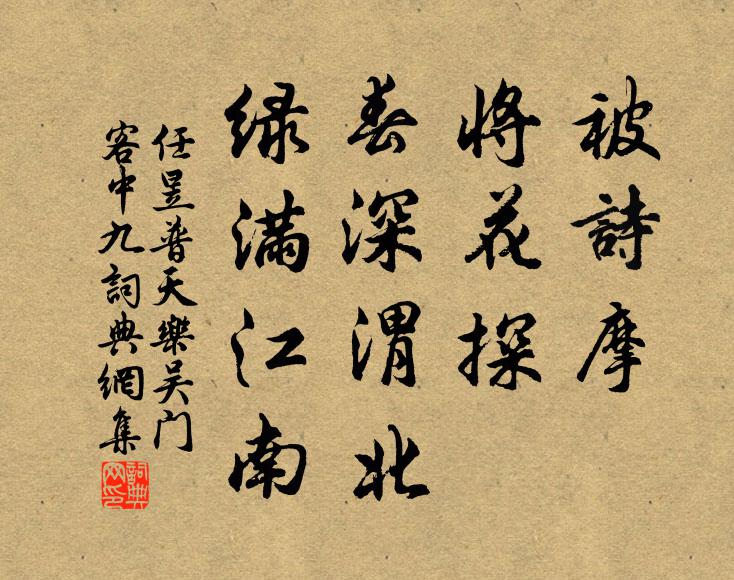 被詩摩
將花探
春深渭北
緑滿江南
任昱普天樂吴门
客中九詞典網集
詞典
网印